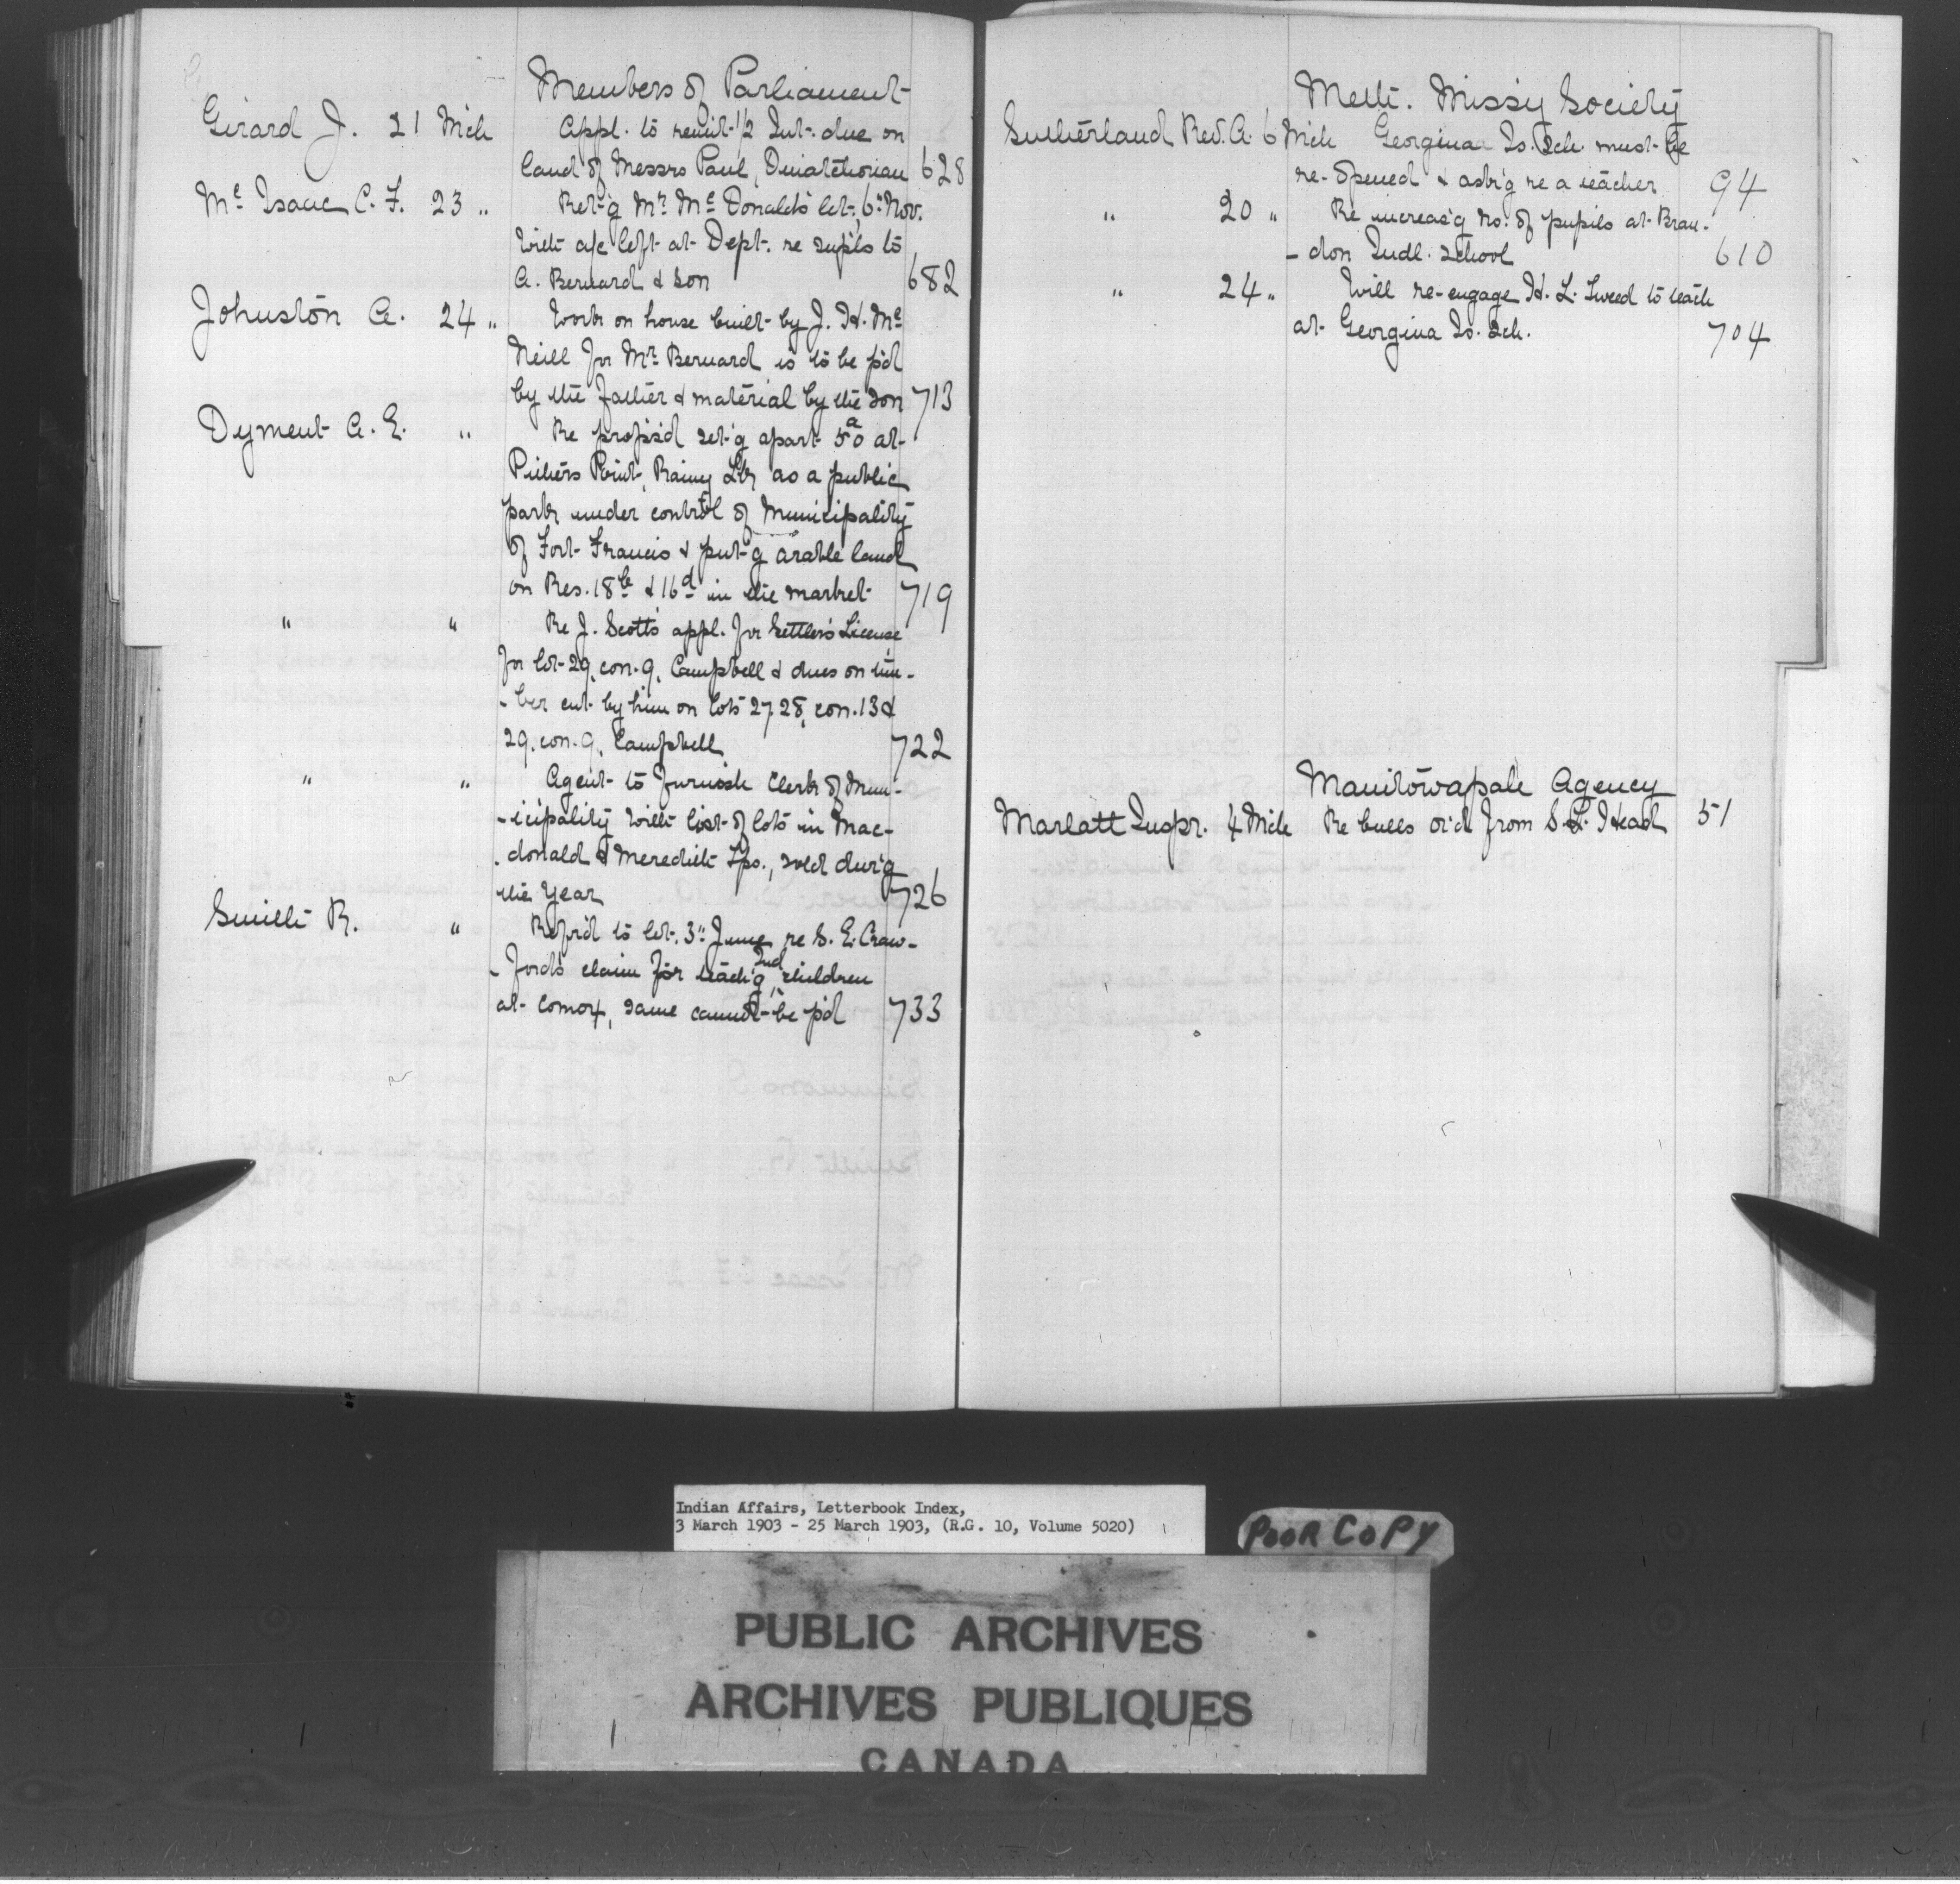 Members of Parliament
Girard J. 21 Mch Appl. to remit 1/2 Int. due on
land of Messrs Paul, 628
McIsaac C. F. 23 " Ret'g Mr McDonald's let. 6" Nov.
with a/c left at Dept. re supls to
A. Bernard & Son 682
Johnston A. 24 " Work on house built by J. H. Mc
Neill for Mr Bernard is to be p'd
by the father & material by the son 713
Dyment A. E. " Re prop'sd set'g apart 50a at
Pithers Point, Rainy Lk, as a public
park under control of Municipality
of Fort Francis & put'g arable land
on Res. 18b & 16d in the market 719
" " Re J. Scott's appl. for Settler's License
for lot 29, con. 9, Campbell & dues on tim-
-ber cut by him on lots 27, 28, con. 13 &
29, con. 9, Campbell 722
" " Agent to furnish Clerk of Mun-
-icipality with list of lots in Mac-
-donald & Meredith Tps., sold dur'g
the year 726
Smith R. " Ref'r'd to let. 3" June re S. E. Craw-
-ford's claim for teach'g Ind children
at Comox, same cannot be p'd 733
Meth. Miss'y Society
Sutherland Rev. A. 6 Mch Georgina Is. Sch. must be
re-opened & ask'g re a teacher 94
" 20 " Re increas'g no. of pupils at Bran-
-don Indl. School 610
" 24 " Will re-engage H. L. Tweed to teach
at Georgina Is. Sch. 704
Manitowapah Agency
Marlatt Inspr. 4 Mch Re bulls or'd from S. L. Head 51
Indian Affairs, Letterbook Index,
3 March 1903 - 25 March 1903, (R.G. 10, Volume 5020)
POOR COPY
PUBLIC ARCHIVES
ARCHIVES PUBLIQUES
CANADA